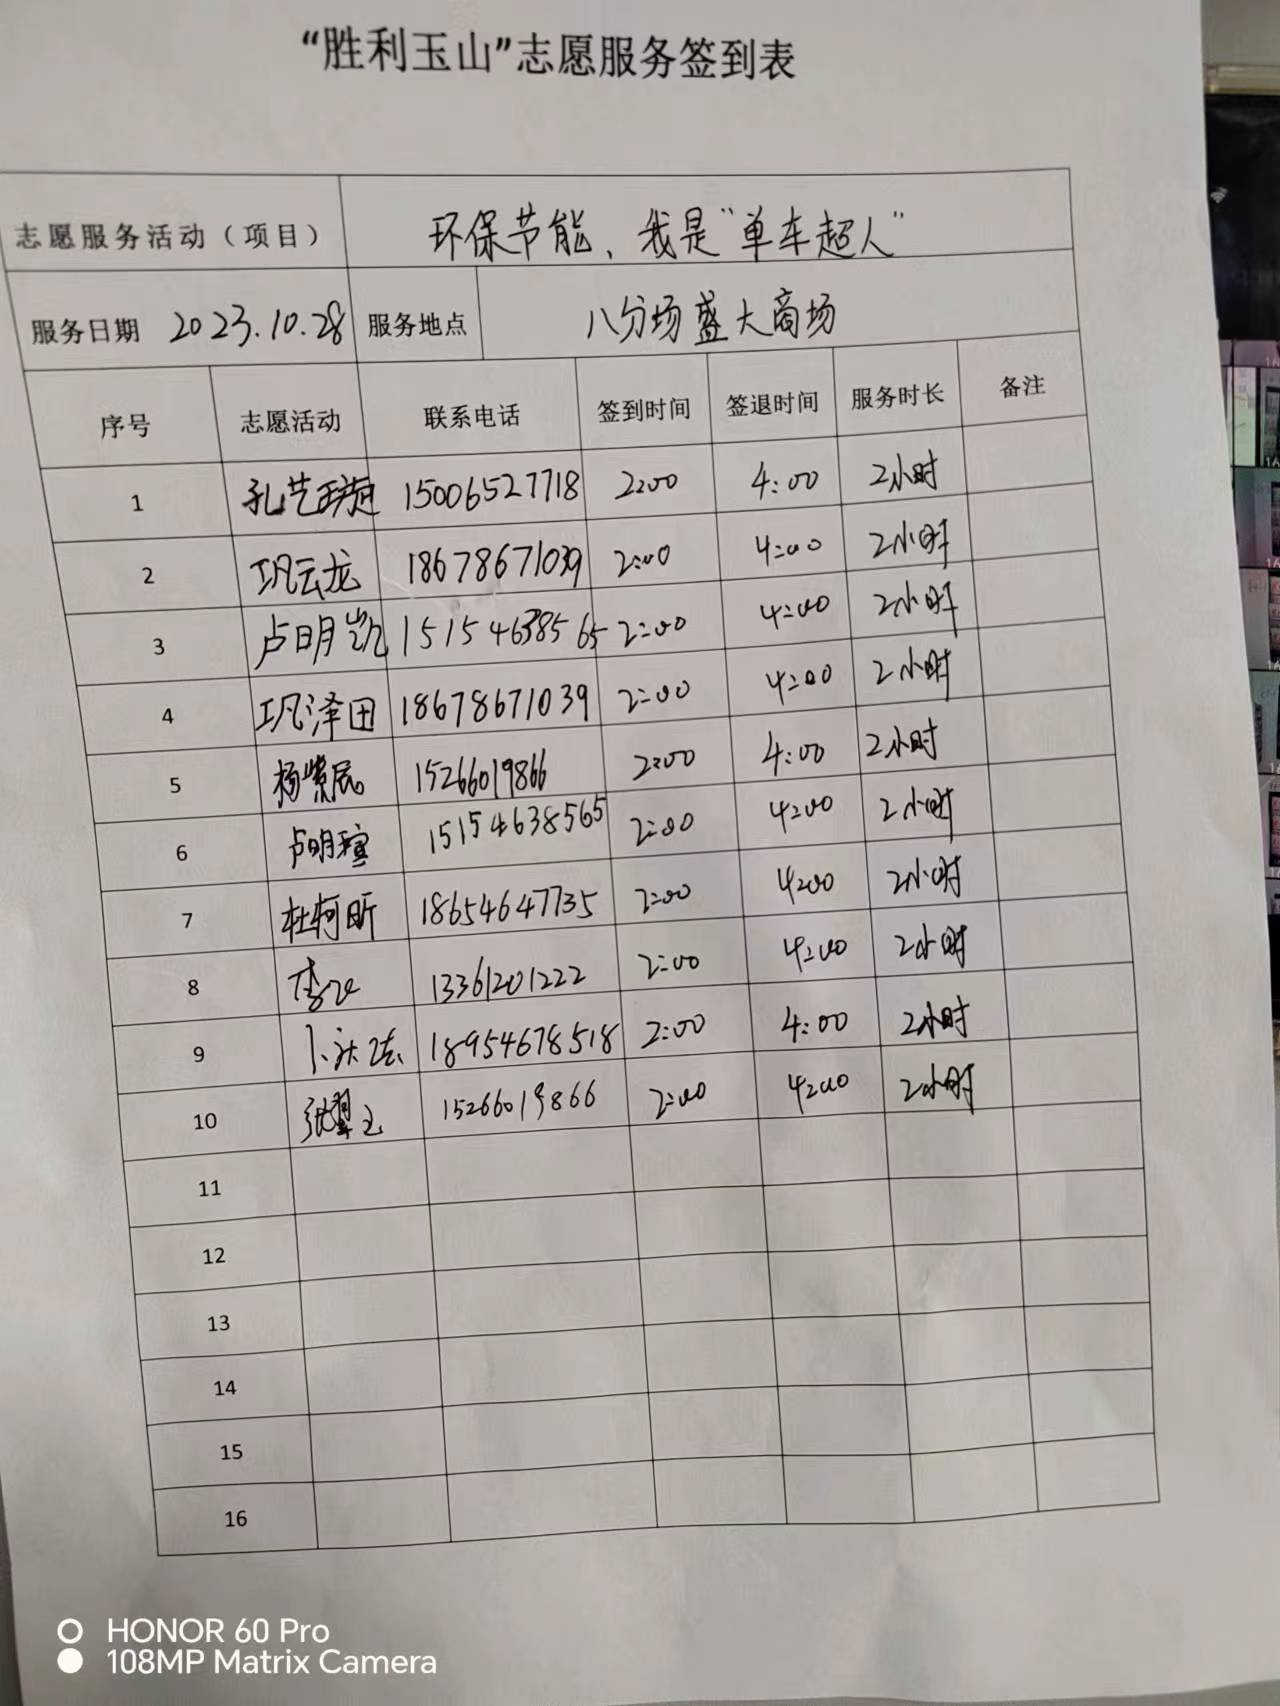 “胜利玉山”志愿服务签到表
志愿服务活动（项目） 环保节能、我是“单车超人”
服务日期 2023.10.28 服务地点 八分场盛大商场
序号 志愿活动 联系电话 签到时间 签退时间 服务时长 备注
1 孔艺 15006527718 2:00 4:00 2小时
2 巩云龙 18678671039 2:00 4:00 2小时
3 卢明凯 15154638565 2:00 4:00 2小时
4 巩泽田 18678671039 2:00 4:00 2小时
5 杨紫辰 15266019866 2:00 4:00 2小时
6 卢明瑄 15154638565 2:00 4:00 2小时
7 杜柯昕 18654647735 2:00 4:00 2小时
8 李 13361201222 2:00 4:00 2小时
9 卜 18954678518 2:00 4:00 2小时
10 张 15266019866 2:00 4:00 2小时
11
12
13
14
15
16
HONOR 60 Pro
108MP Matrix Camera